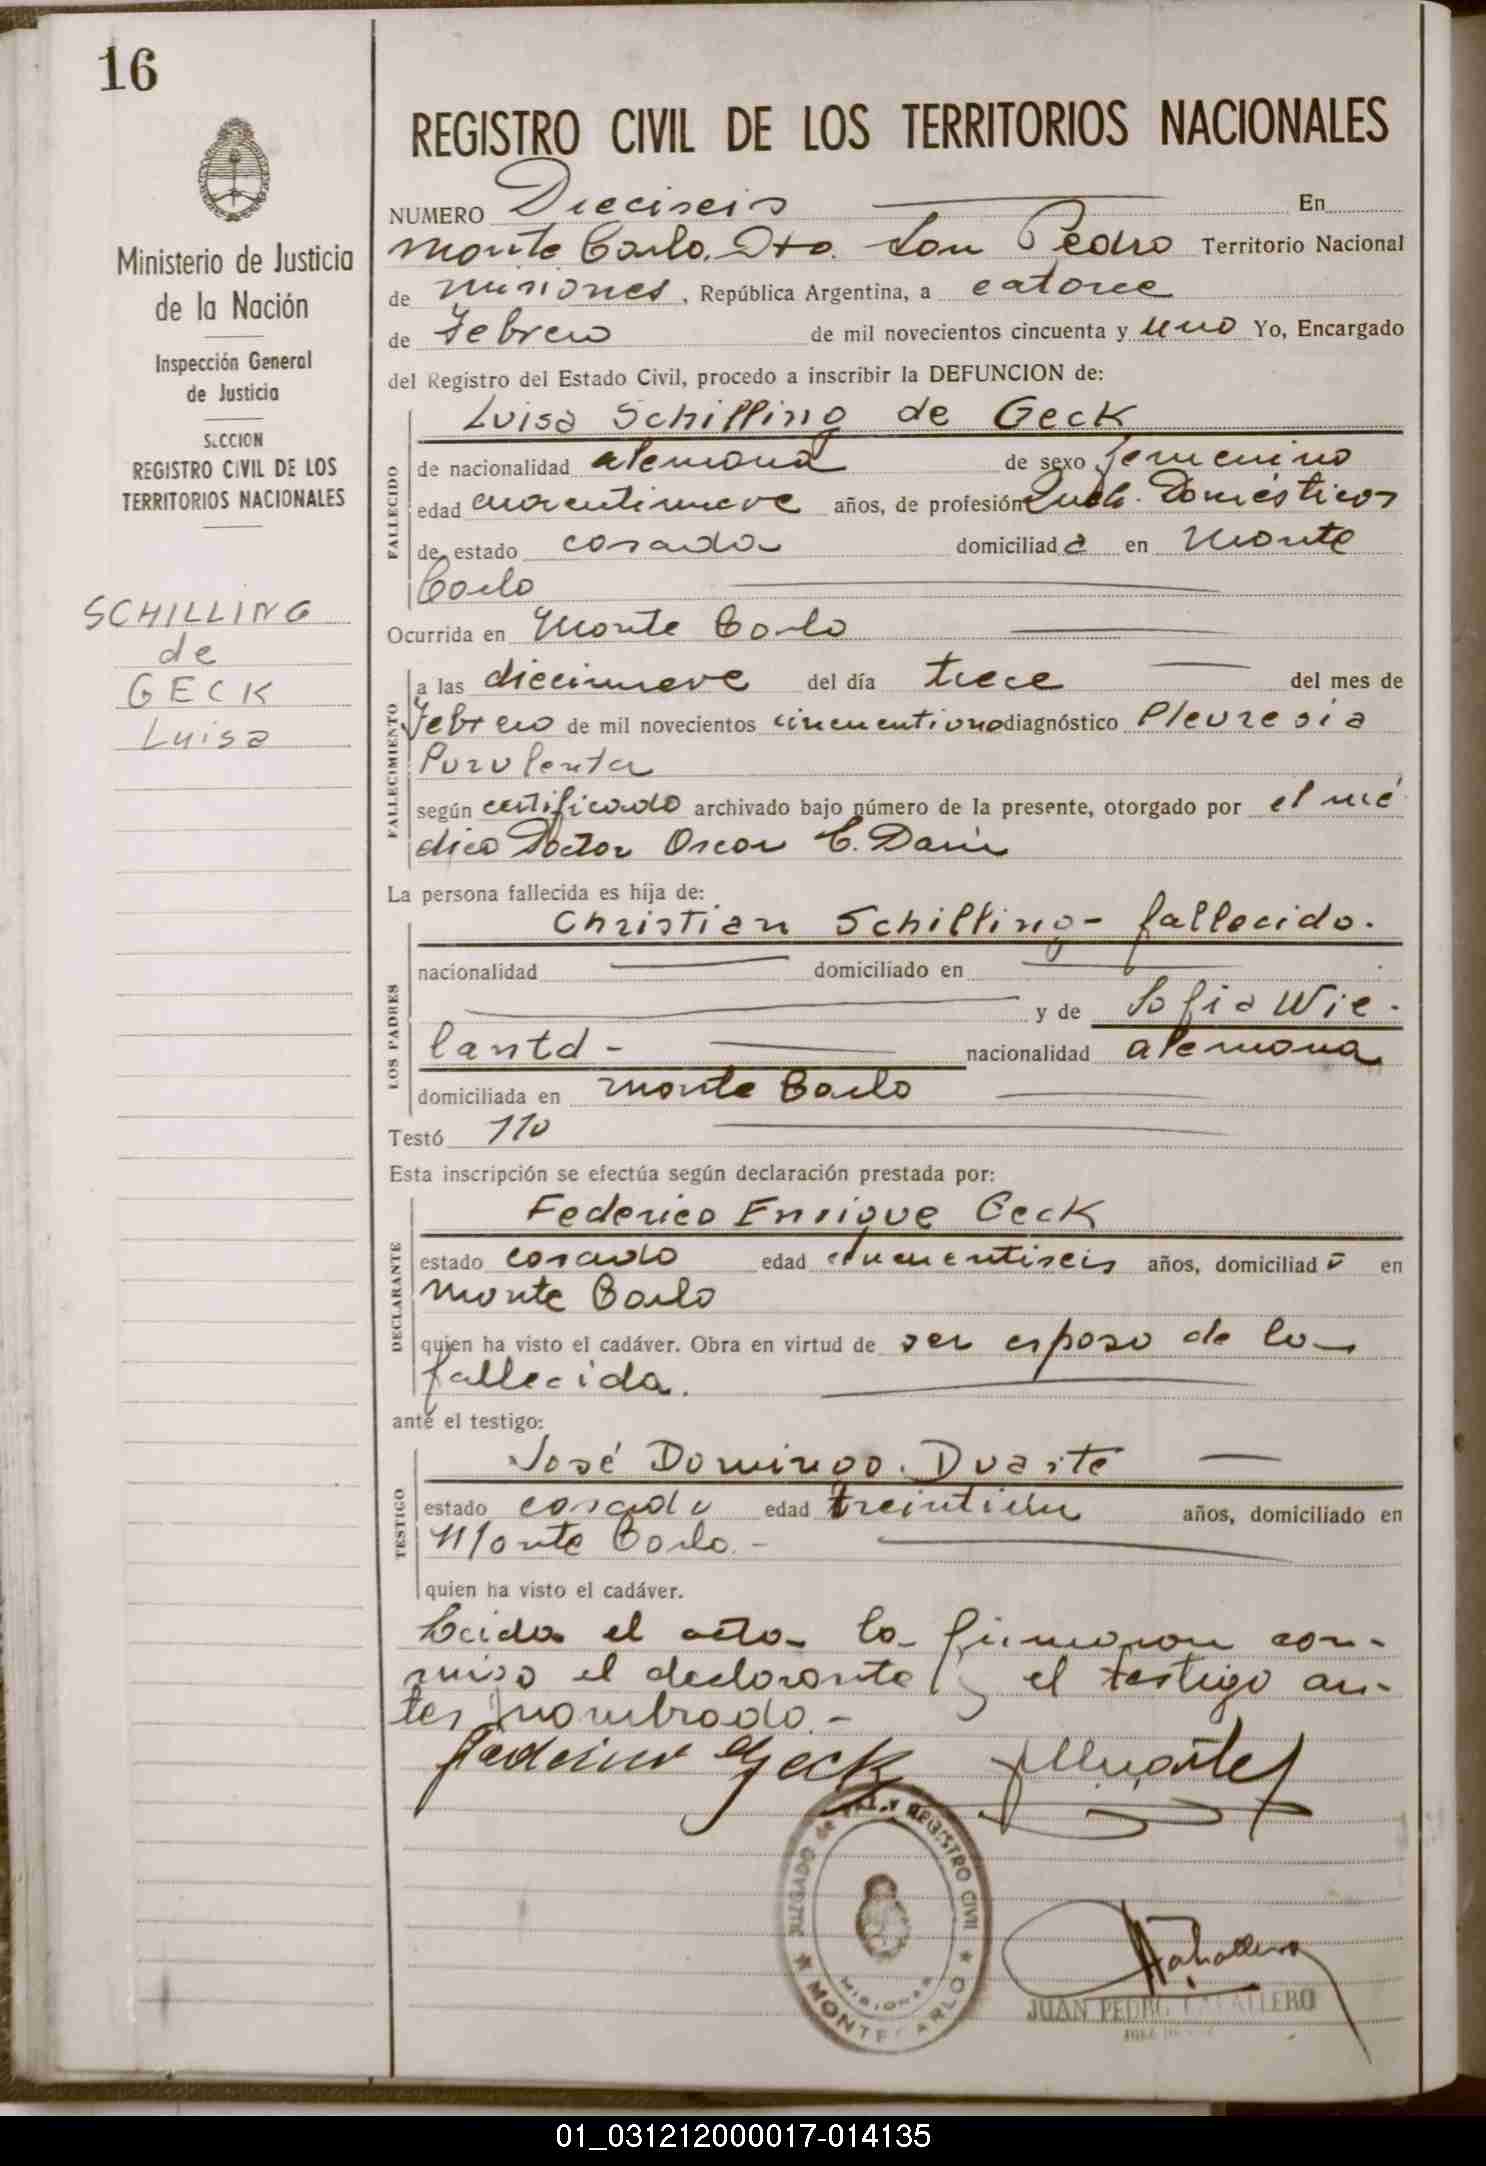 16
Ministerio de Justicia
de la Nación
Inspección General
de Justicia
SECCION
REGISTRO CIVIL DE LOS
TERRITORIOS NACIONALES
SCHILLING
de
GECK
Luisa
REGISTRO CIVIL DE LOS TERRITORIOS NACIONALES
NUMERO Dieciseis En
Monte Carlo. Dto. San Pedro Territorio Nacional
de Misiones, República Argentina, a catorce
de Febrero de mil novecientos cincuenta y uno Yo, Encargado
del Registro del Estado Civil, procedo a inscribir la DEFUNCION de:
Luisa Schilling de Geck
FALLECIDO
de nacionalidad alemana de sexo femenino
edad cuarentinueve años, de profesión Queh. Domésticos
de estado casada domiciliada en Monte
Carlo
Ocurrida en Monte Carlo
FALLECIMIENTO
a las diecinueve del día trece del mes de
Febrero de mil novecientos cincuentiuno diagnóstico Pleuresia
Purulenta
según certificado archivado bajo número de la presente, otorgado por el mé
dico Doctor Oscar C. Darú
La persona fallecida es hija de:
Christian Schilling - fallecido.
LOS PADRES
nacionalidad domiciliado en
y de Sofia Wie-
lantd - nacionalidad alemana
domiciliada en Monte Carlo
Testó no
Esta inscripción se efectúa según declaración prestada por:
Federico Enrique Geck
DECLARANTE
estado casado edad cincuentiseis años, domiciliado en
Monte Carlo
quien ha visto el cadáver. Obra en virtud de ser esposo de la
fallecida.
ante el testigo:
José Domingo Duarte
TESTIGO
estado casado edad treintiún años, domiciliado en
Monte Carlo. -
quien ha visto el cadáver.
Leida el acta la firmaron con-
migo el declarante y el testigo an-
tes nombrado. -
Federico Geck
JUZGADO de PAZ Y REGISTRO CIVIL
MISIONES
MONTECARLO
JUAN PEDRO CABALLERO
JUEZ DE PAZ
01_031212000017-014135